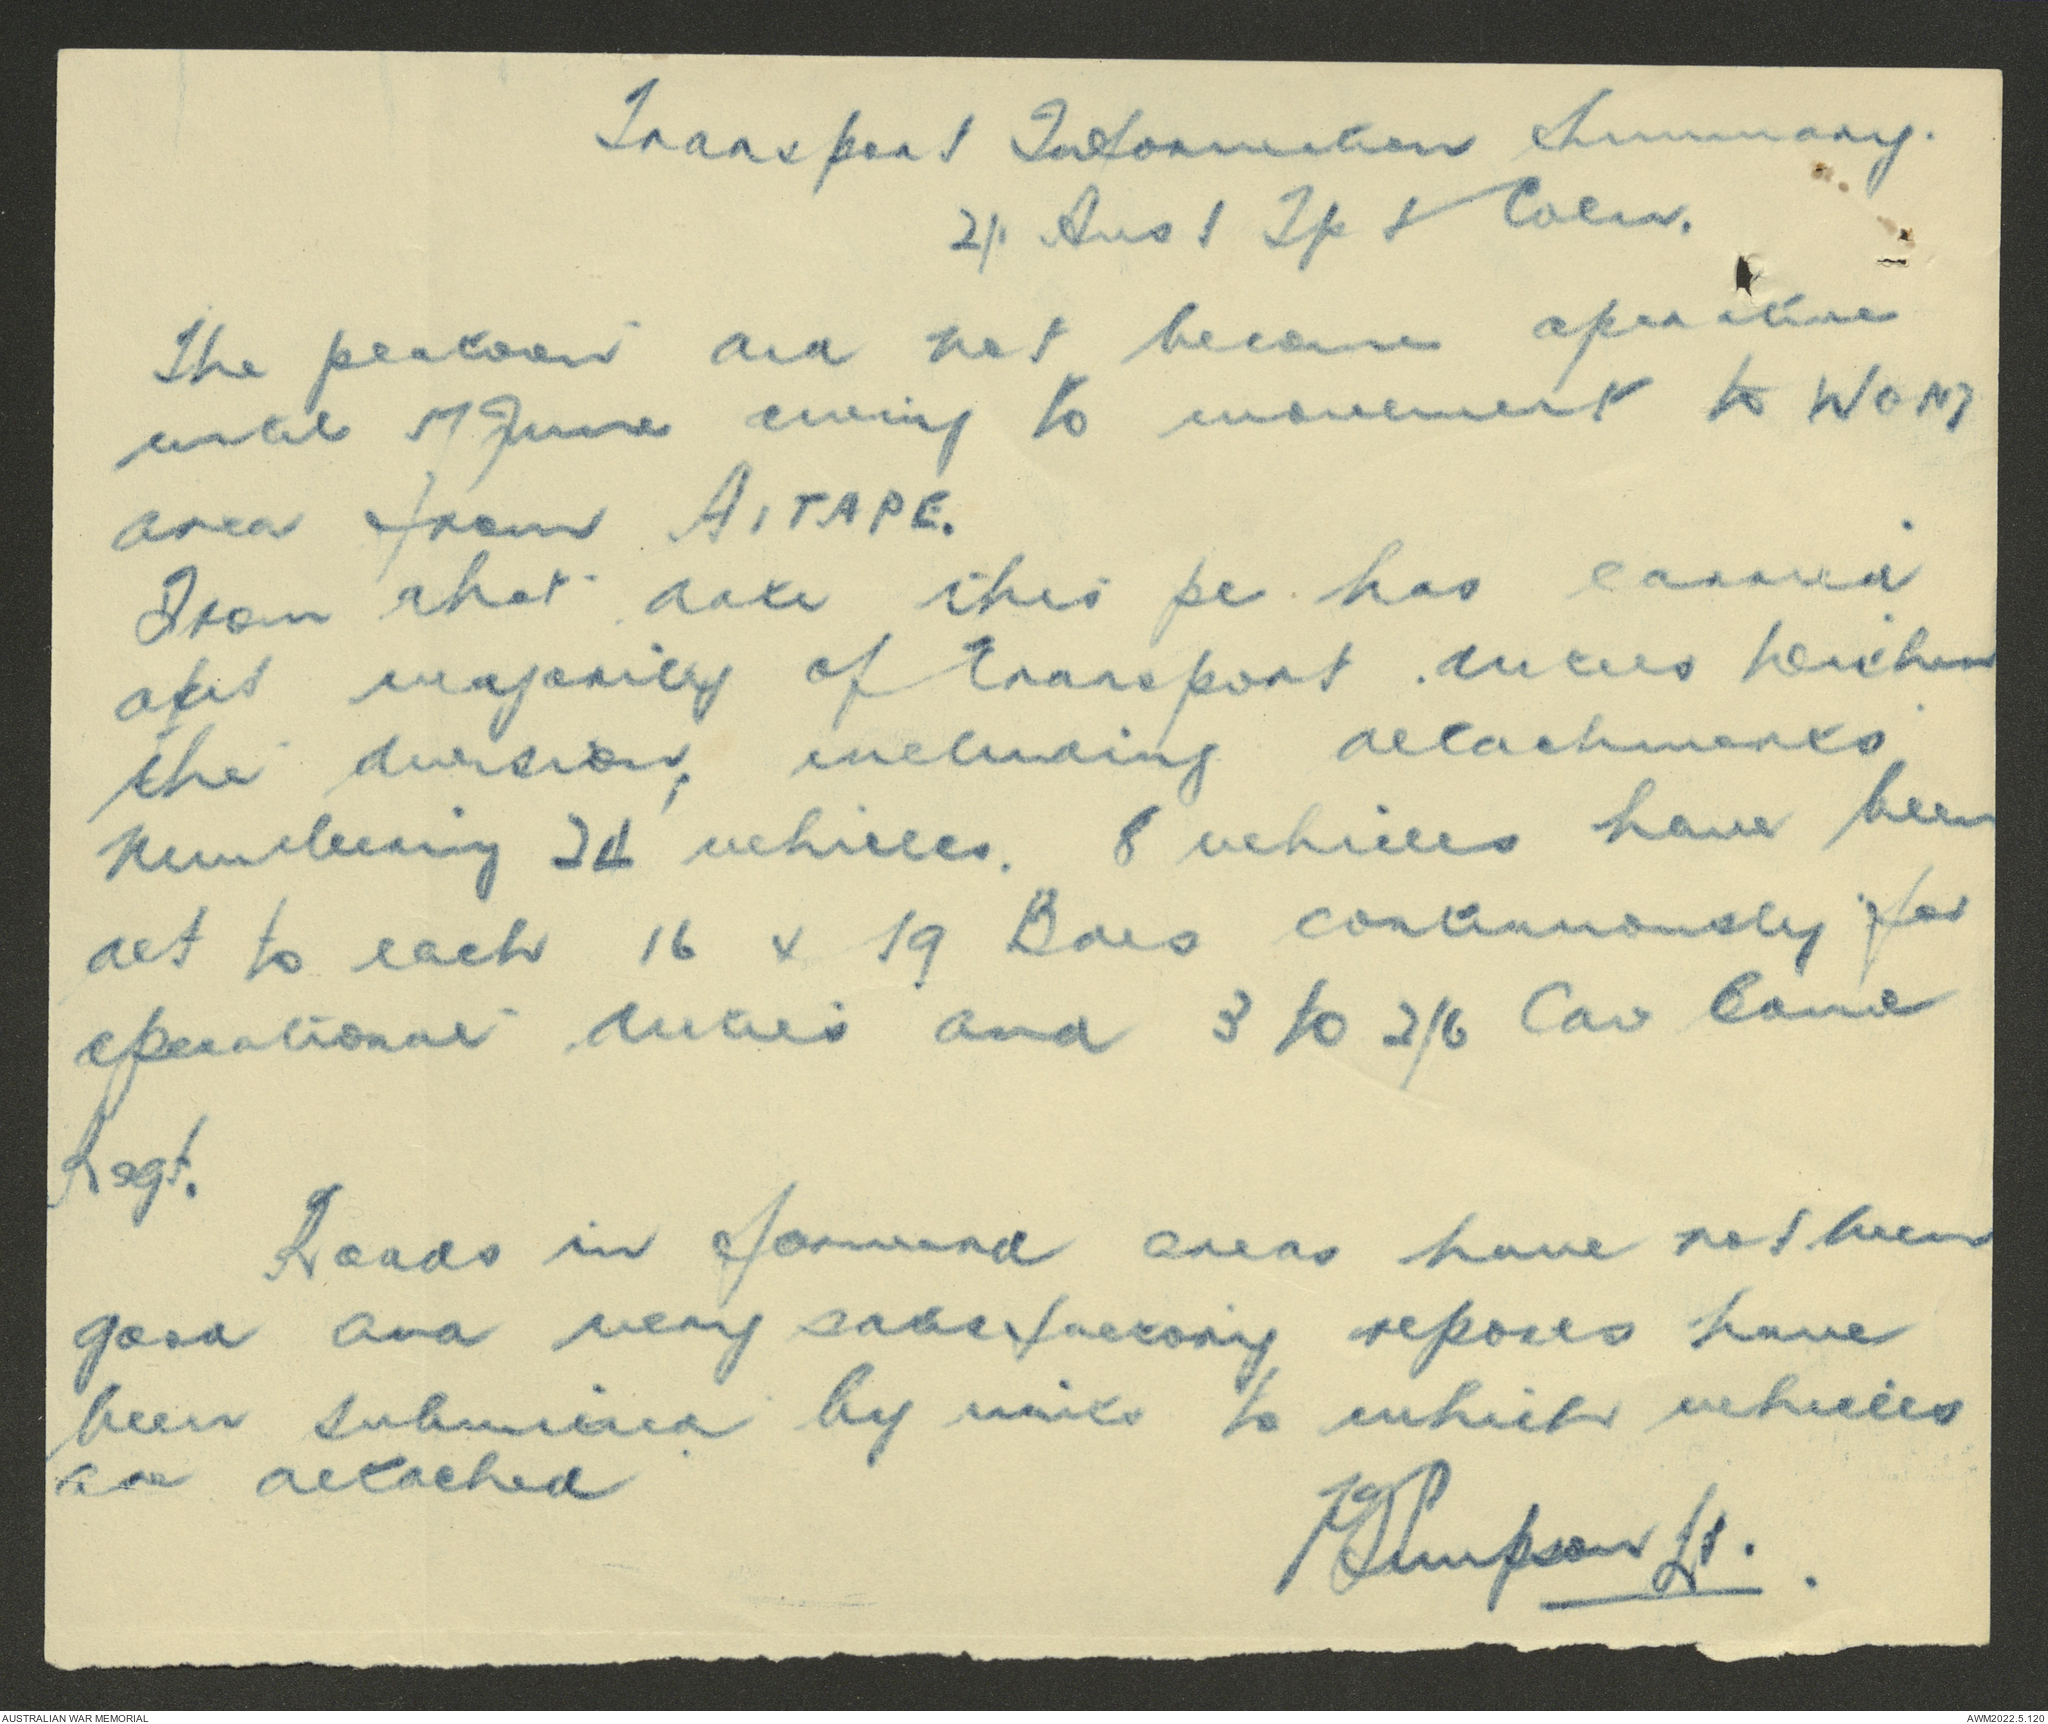 Transport Information Summary.
2/1 Aust Tpt Coln.
The platoon did not become operative
until 7 June owing to movement to WOM
area from AITAPE.
From that date this pl. has carried
out majority of transport duties within
the division, including detachments
numbering 24 vehicles. 8 vehicles have been
det to each 16 & 19 Bdes continuously for
operational duties and 3 to 2/6 Cav Comd
Regt.
Roads in forward areas have not been
good and very satisfactory reports have
been submitted by units to which vehicles
are detached
Simpson Lt.
AUSTRALIAN WAR MEMORIAL
AWM2022.5.120